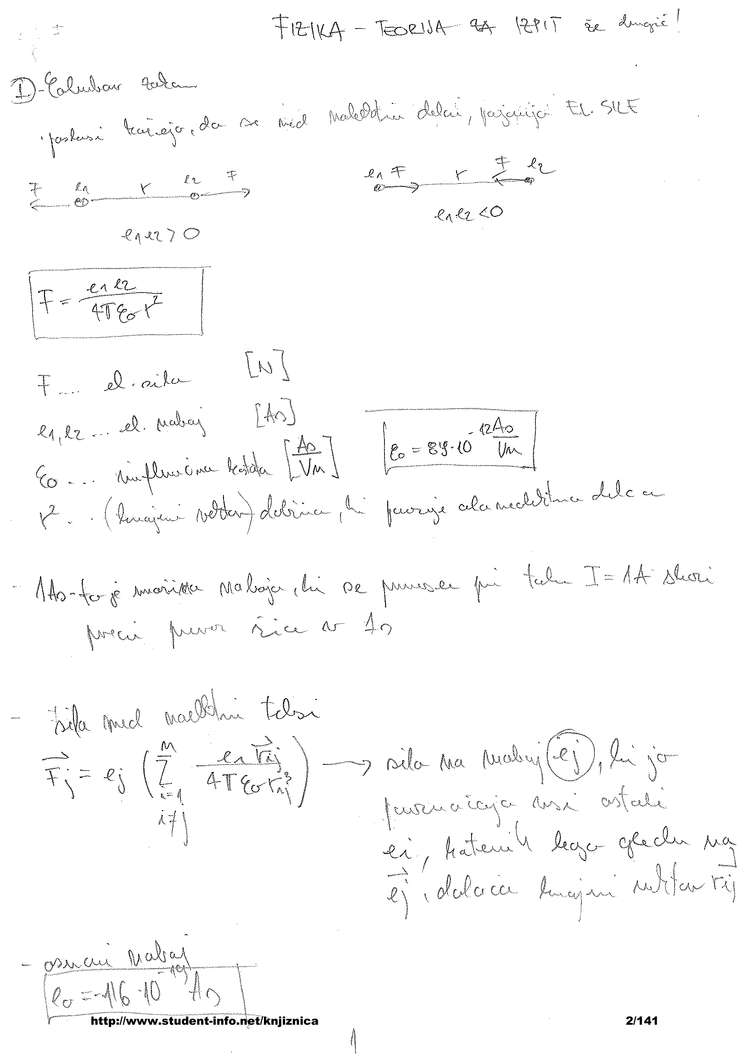 FIZIKA – TEORIJA ZA IZPIT že drugič!
I - Coulombov zakon
poskusi kažejo, da se med naelektrenimi delci, pojavljajo EL. SILE
F e1 r e2 F
e1 F r F e2
e1e2 > 0
e1e2 < 0
F = e1 e2 / 4πε0 r²
F .... el. sila [N]
e1, e2 ... el. naboj [As]
ε0 ... influenčna konstanta [As/Vm]
ε0 = 8,9·10⁻¹² As/Vm
r² .. (krajevni vektor) dolžina, ki povezuje oba naelektrena delca
- 1As - to je množina naboja, ki se prenese pri toku I = 1A skozi
presek žice v 1s
- sila med naelektrenimi telesi
F⃗j = ej ( Σ i=1 n i≠j ei r⃗ij / 4πε0 rij³ ) → sila na naboj ej, ki jo
povzročajo vsi ostali
ei, katerih lego glede na
ej, določa krajevni vektor r⃗ij
- osnovni naboj
e0 = -1,6·10⁻¹⁹ As
http://www.student-info.net/knjiznica
2/141
1